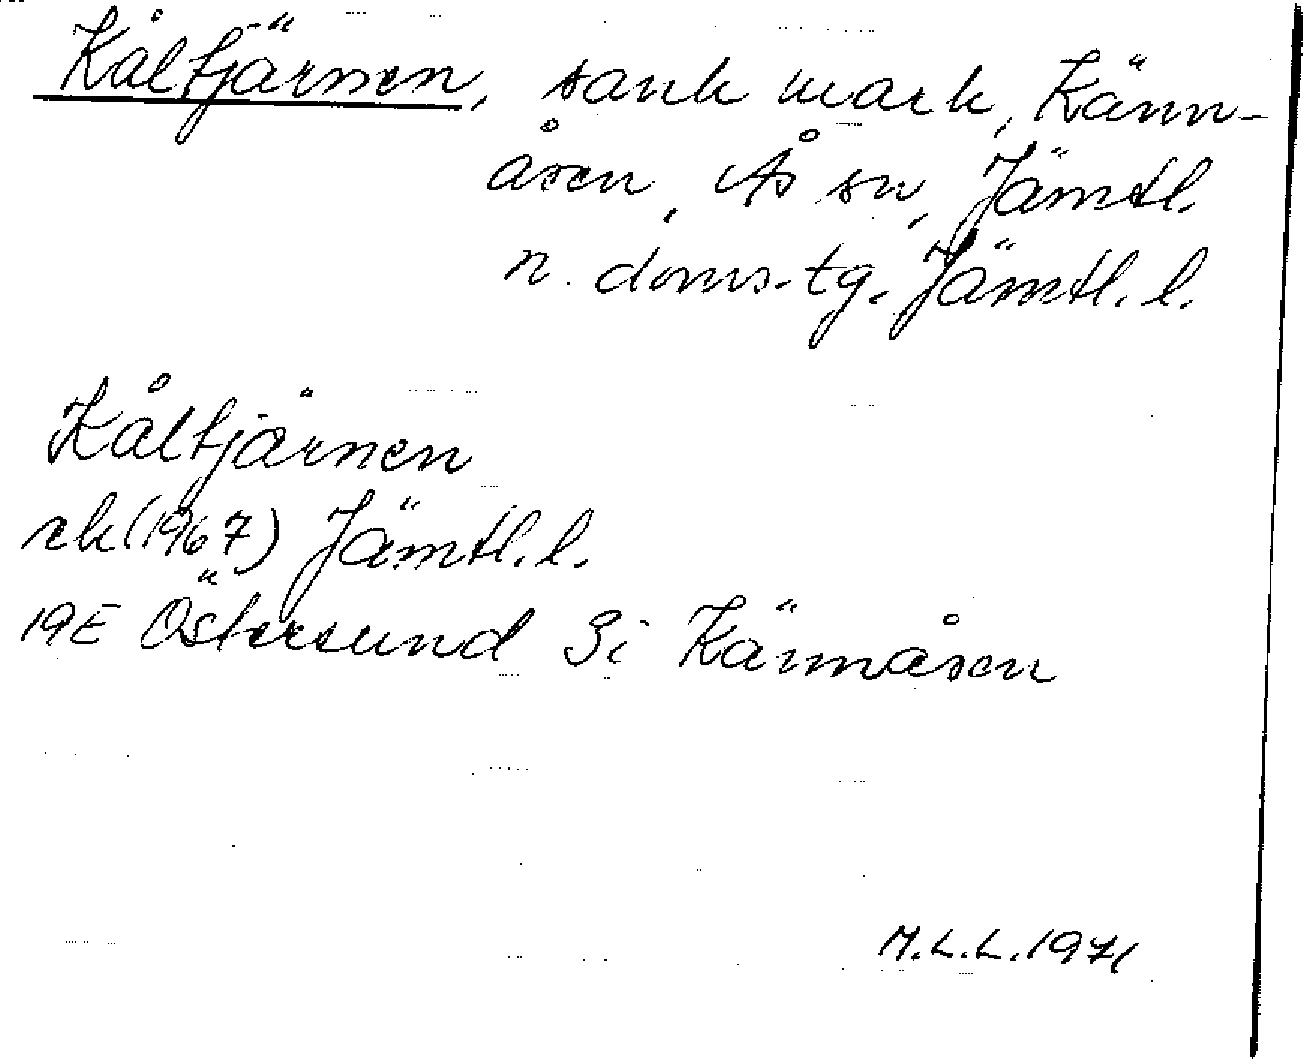 Kåltjärnen, sank mark, Känn-
åsen, Ås sn, Jämtl.
n. doms.tg. Jämtl. l.
Kåltjärnen
ek(1967) Jämtl. l.
19E Östersund 3i Kännåsen
M.L.L. 1971